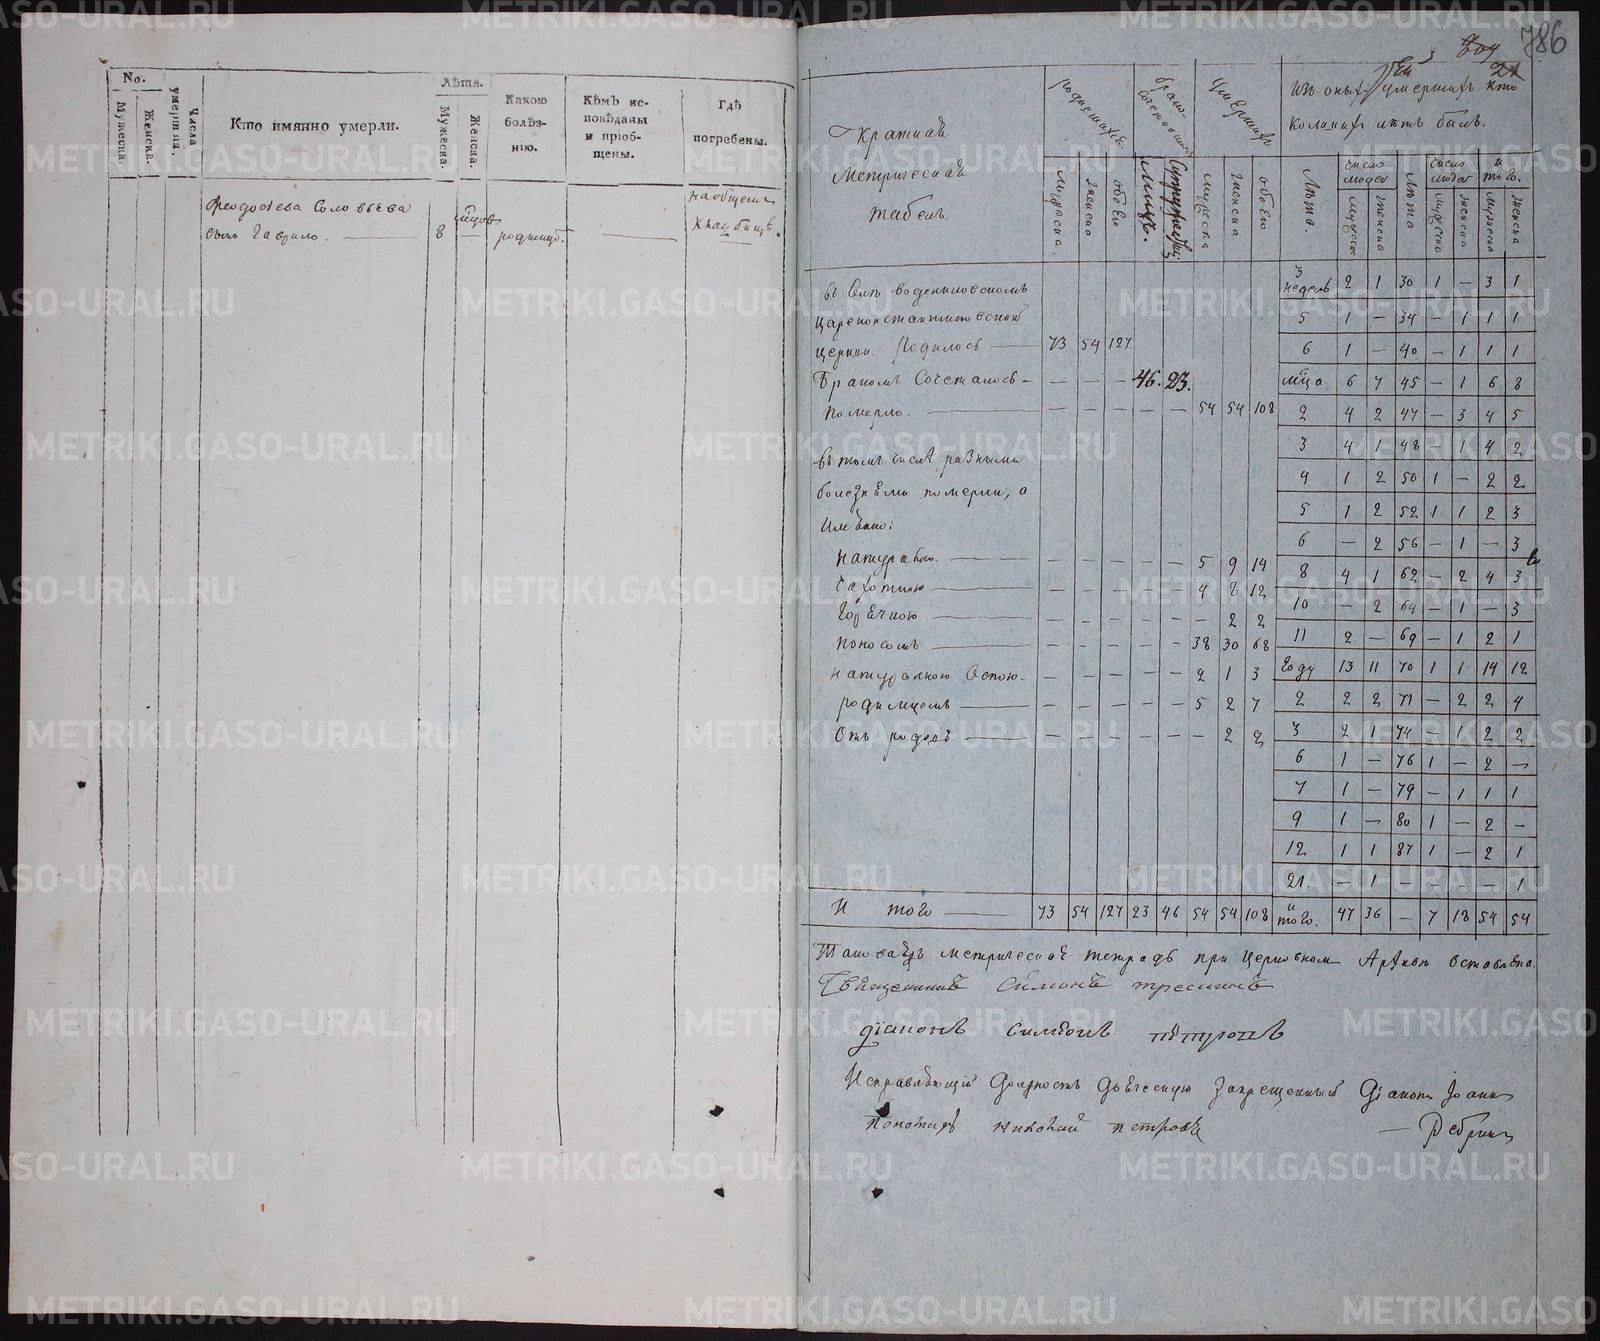 No.
Мужеска.
Женска.
Числа умертвія.
Кто имянно умерли.
Лѣта.
Мужеска.
Женска.
Какою болѣз-нію.
Кѣмъ ис-повѣданы и пріоб-щены.
Гдѣ погребены.
Ѳеодосѣева Соловьева
сынъ Гаврило. 8 мцов родимцо.
на общем
кладбищѣ.
786
Краткая
Метрическая
табель.
родившихся
мужеска.
женско
обоего
брако-сочетавшихся
лицъ.
Супружествъ
умершихъ
мужеска
женска
обоего
изъ оныхъ умершихъ кто
коликихъ лѣтъ былъ.
Лѣта.
число людей
мужеска
женска
Лѣта
число людей
мужеска
женска
и того.
мужеска
женска
въ Селѣ
Цареконстантиновской
церкви. Родилось — 73 54 127.
Бракомъ Сочеталось - — — — 46. 23.
Померло. — — — — — — 54 54 108
въ томъ числѣ разными
болезнями померли, а
имѣнно:
натурально. — 5 9 14
Чахотною — 4 8 12
Горѣчкою — 2 2
поносомъ — 38 30 68
натуральною Оспою. — 2 1 3
родимцомъ — 5 2 7
Отъ родовъ — 2 2
И того — 73 54 127 23 46 54 54 108
3 недель 2 1 30 1 — 3 1
5 1 — 34 — 1 1 1
6 1 — 40 — 1 1 1
мца 6 7 45 — 1 6 8
2 4 2 47 — 3 4 5
3 4 1 48 1 4 2
4 1 2 50 1 — 2 2
5 1 2 52 1 1 2 3
6 — 2 56 — 1 — 3
8 4 1 62 — 2 4 3
10 — 2 64 — 1 — 3
11 2 — 69 — 1 2 1
Году 13 11 70 1 1 14 12
2 2 2 71 — 2 2 4
3 2 1 74 — 1 2 2
6 1 — 76 1 — 2 —
7 1 — 79 — 1 1 1
9 1 — 80 1 — 2 —
12 1 1 87 1 — 2 1
21. — 1 — — — — 1
и того. 47 36 — 7 18 54 54
Таковаяжъ метрическая тетрадь при церковномъ Архивѣ оставлена.
Священникъ Симонъ
діаконъ Симеонъ
Исправляющій должность дьяческую Запрещенный Діаконъ Іоаннъ
Пономарь Николай Петровъ
METRIKI.GASO-URAL.RU